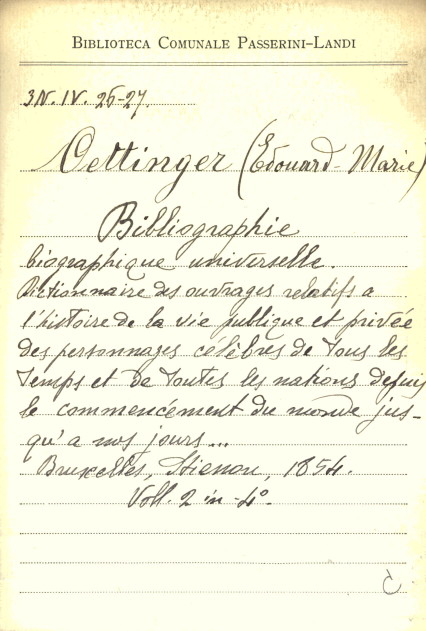 BIBLIOTECA COMUNALE PASSERINI-LANDI
3N. IV. 26-27.
Oettinger (Edouard-Marie)
Bibliographie
biographique universelle.
Dictionnaire des ouvrages relatifs a
l'histoire de la vie publique et privée
des personnages célèbres de tous les
temps et de toutes les nations depuis
le commencement du monde jus-
qu'a nos jours...
Bruxelles, Stienon, 1854.
Voll. 2 in-4°.